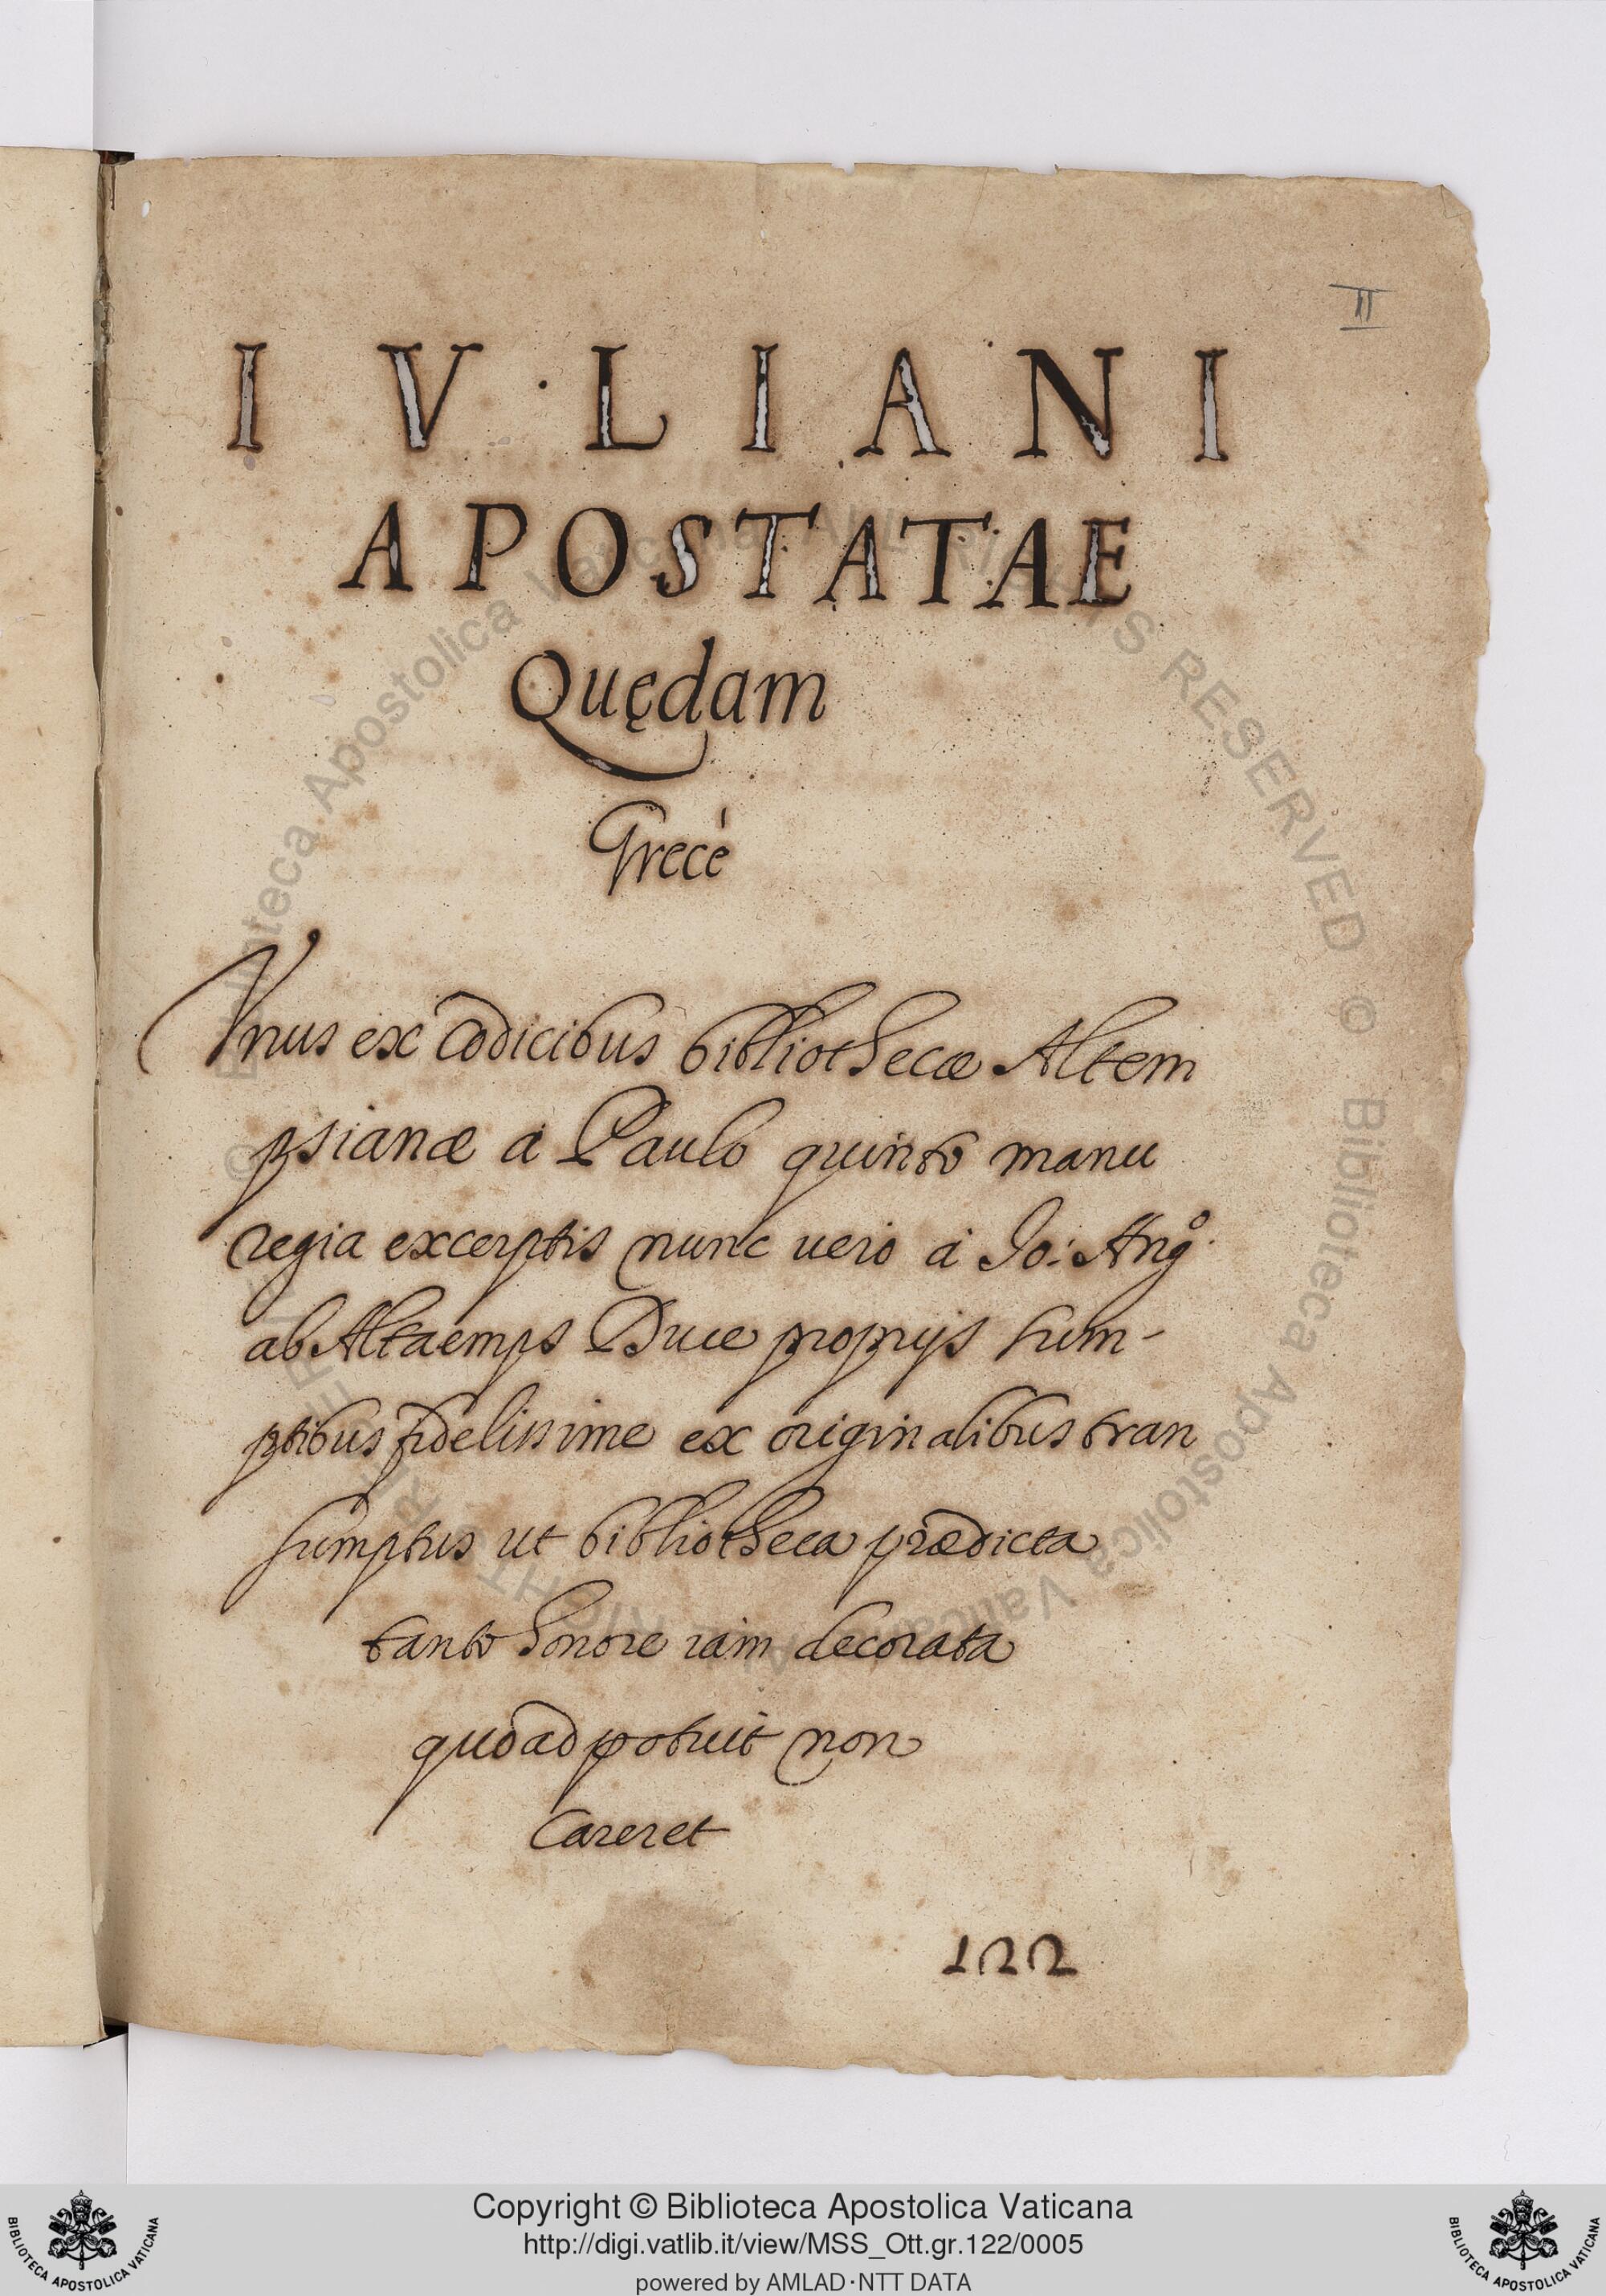 II
IVLIANI
APOSTATAE
Quędam
Grecè
Vnus ex codicibus bibliothecæ Altem
psianæ a Paulo quinto manu
regia excerptis nunc uero à Io: Angº.
ab Altaemps Duce proprijs sum-
ptibus fidelissime ex originalibus tran
sumptus ut bibliotheca prædicta
tanto honore iam decorata
quoad potuit non
careret
122
Copyright © Biblioteca Apostolica Vaticana
http://digi.vatlib.it/view/MSS_Ott.gr.122/0005
powered by AMLAD·NTT DATA
BIBLIOTECA APOSTOLICA VATICANA
BIBLIOTECA APOSTOLICA VATICANA